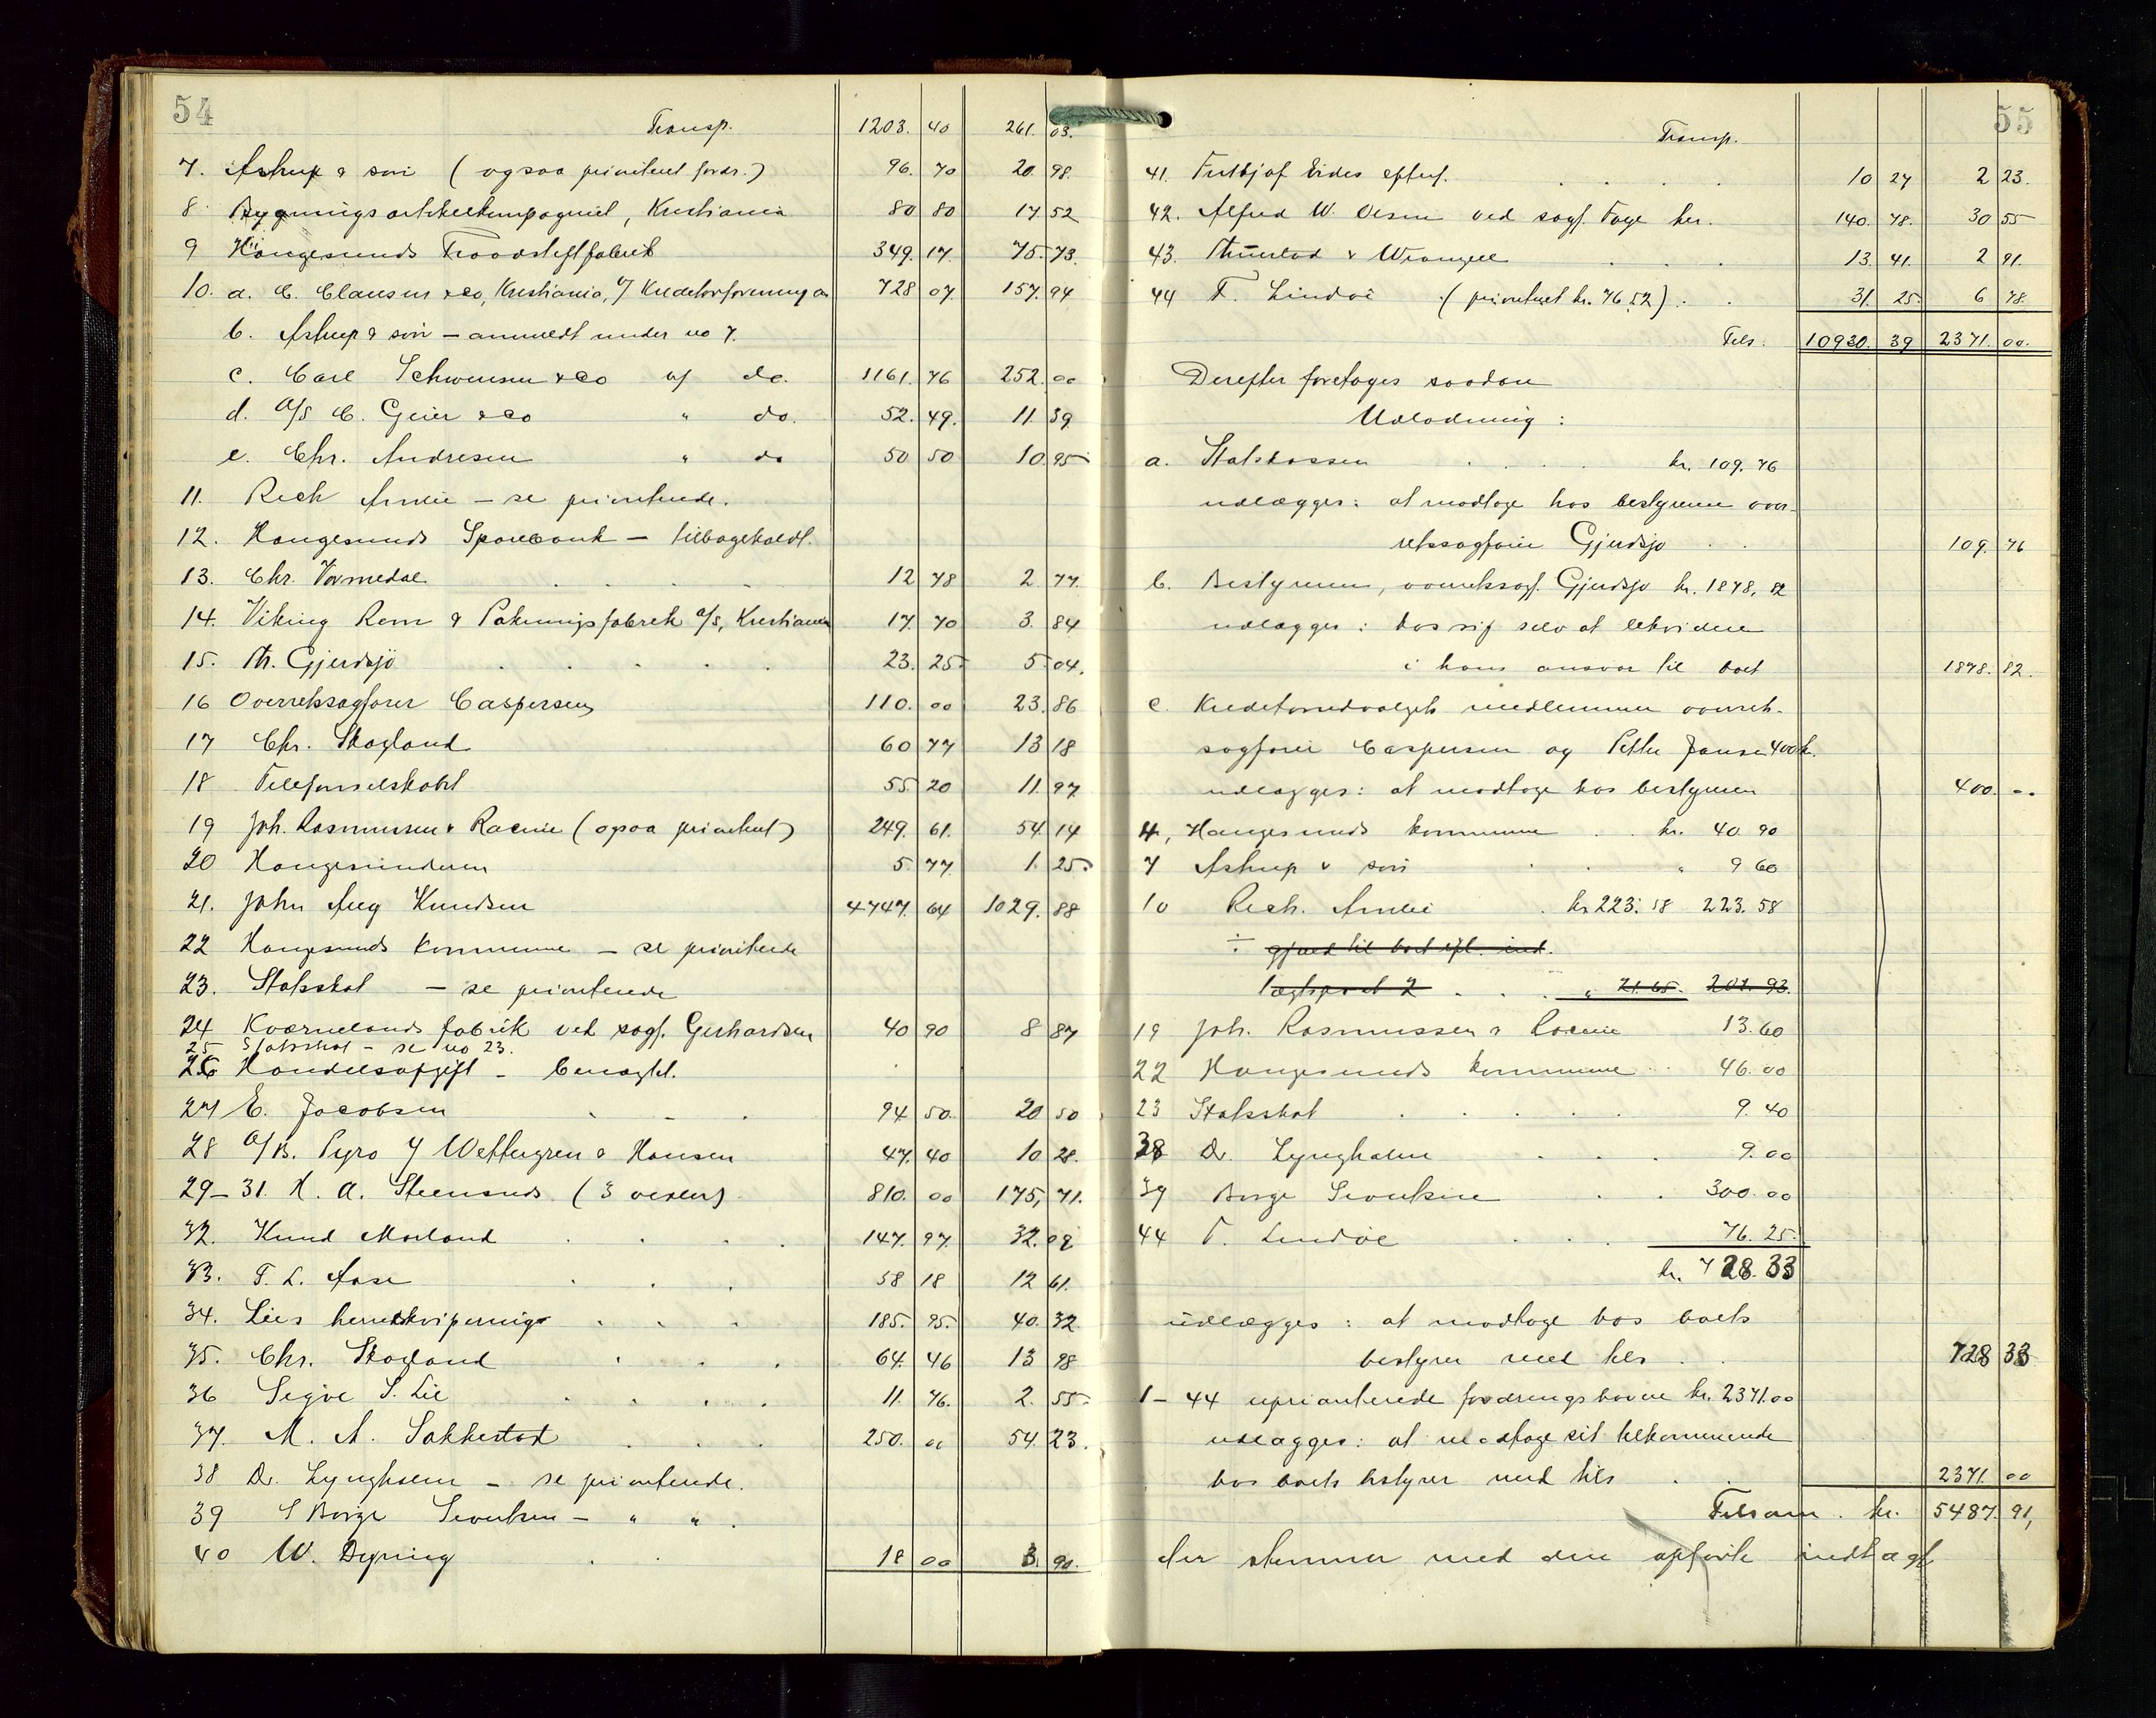 54
Transp. 1203. 40 261. 03.
7. Astrup & søn ( ogsaa prioriteret fordr.) 96. 70 20. 98.
8 Bygningsartikelkompagniet, Kristiania 80 80 17 52
9 Haugesunds Traadstiftfabrik 349. 17. 75. 73.
10. a. C. Clausen & co, Kristiania, v/ Kreditorforeningen 728 07. 157. 94
b. Astrup & søn – anmeldt under no 7.
c. Carl Schwensen & co v/ do. 1161. 76 252. 00
d. A/S C. Geier & co " do. 52. 49. 11. 39
e. Chr. Andresen " do 50 50 10 95
11. Rich Amlie – se prioriterede.
12. Haugesunds Sparebank – tilbagekaldt.
13. Chr. Vormedal 12 78 2. 77.
14. Viking Rem & Pakningsfabrik A/S, Kristiania 17. 70 3. 84
15. Th. Gjerdsjö 23. 25. 5 04.
16 Overretssagfører Caspersen 110. 00 23. 86
17 Chr. Skogland 60 77 13 18
18 Telefonselskabet 55. 20 11. 97
19 Joh. Rasmussen & Racine ( ogsaa prioritert) 249. 61. 54. 14
20 Haugesunderen 5. 77. 1. 25.
21. John Aug Knudsen 4747. 64 1029. 88
22 Haugesunds kommune – se prioriterede
23. Statsskat – se prioriterede
24 Kværnelands fabrik ved sagf. Gerhardsen 40 90 8 87
25 Statsskat – se no 23.
26 Handelsafgift – benægtet.
27 E. Jacobsen 94 50. 20 50
28 A/B. Pyro v/ Wettergren & Hansen 47. 40 10 28.
29–31. H. A. Steensnæs (3 vexler) 810. 00 175, 71.
32. Knud Morland 147. 97. 32. 09
33. T. L. Aase 58 18 12 61.
34. Lies herreekvipering 185. 95. 40. 32
35. Chr. Skogland 64. 46 13 98
36 Sigve S. Lie 11. 76. 2. 55
37. M. A. Sakkestad 250. 00 54. 23.
38 Dr. Lyngholm – se prioriterede.
39 S Børge Sivertsen – " " .
40 W. Dyring 18 00 3. 90.
55
Transp.
41. Fritjof Eides efterf. 10 27 2 23.
42. Alfred W. Olsen ved sagf. Tage her. 140. 78. 30 55
43. Thunestad & Wrangell 13. 41. 2 91.
44 T. Lindøe (prioritert kr. 76.52). 31. 25. 6 78.
Tils. 10930. 39 2371. 00.
Derefter foretages saadan
Udlodning :
a. Statskassen kr. 109. 76
udlægges: at modtage hos bestyreren over-
retssagfører Gjerdsjø 109. 76
b. Bestyreren, overretssagf. Gjerdsjø kr. 1878, 82
udlægges : hos sig selv at likvidere
i hans ansvar til boet 1878. 82.
c. Kreditorudvalgets medlemmer overret-
sagfører Caspersen og Petter Jansen 400 kr.
udlægges: at modtage hos bestyreren 400. 00
4, Haugesunds kommune kr. 40. 90
7 Astrup & søn " 9 60
10 Rich. Amlie kr. 223. 58 223. 58
÷ gjæld til boet efl. ind.
lægtspost 2 " 21.65. 201. 93.
19 Joh. Rasmussen & Racine 13. 60
22 Haugesunds kommune 46. 00
23 Statsskat 9. 40
38 Dr. Lyngholm 9. 00
39 Børge Sivertsen 300. 00
44 T. Lindøe 76. 25.
kr. 728. 33
udlægges : at modtage hos boets
bestyrer med tils 728 33
1 – 44 uprioriterede fordringshavere kr. 2371.00
udlægges: at modtage sit tilkommende
hos boets bestyrer med tils 2371. 00
Tilsam. kr. 5487. 91,
der stemmer med den opførte indtægt